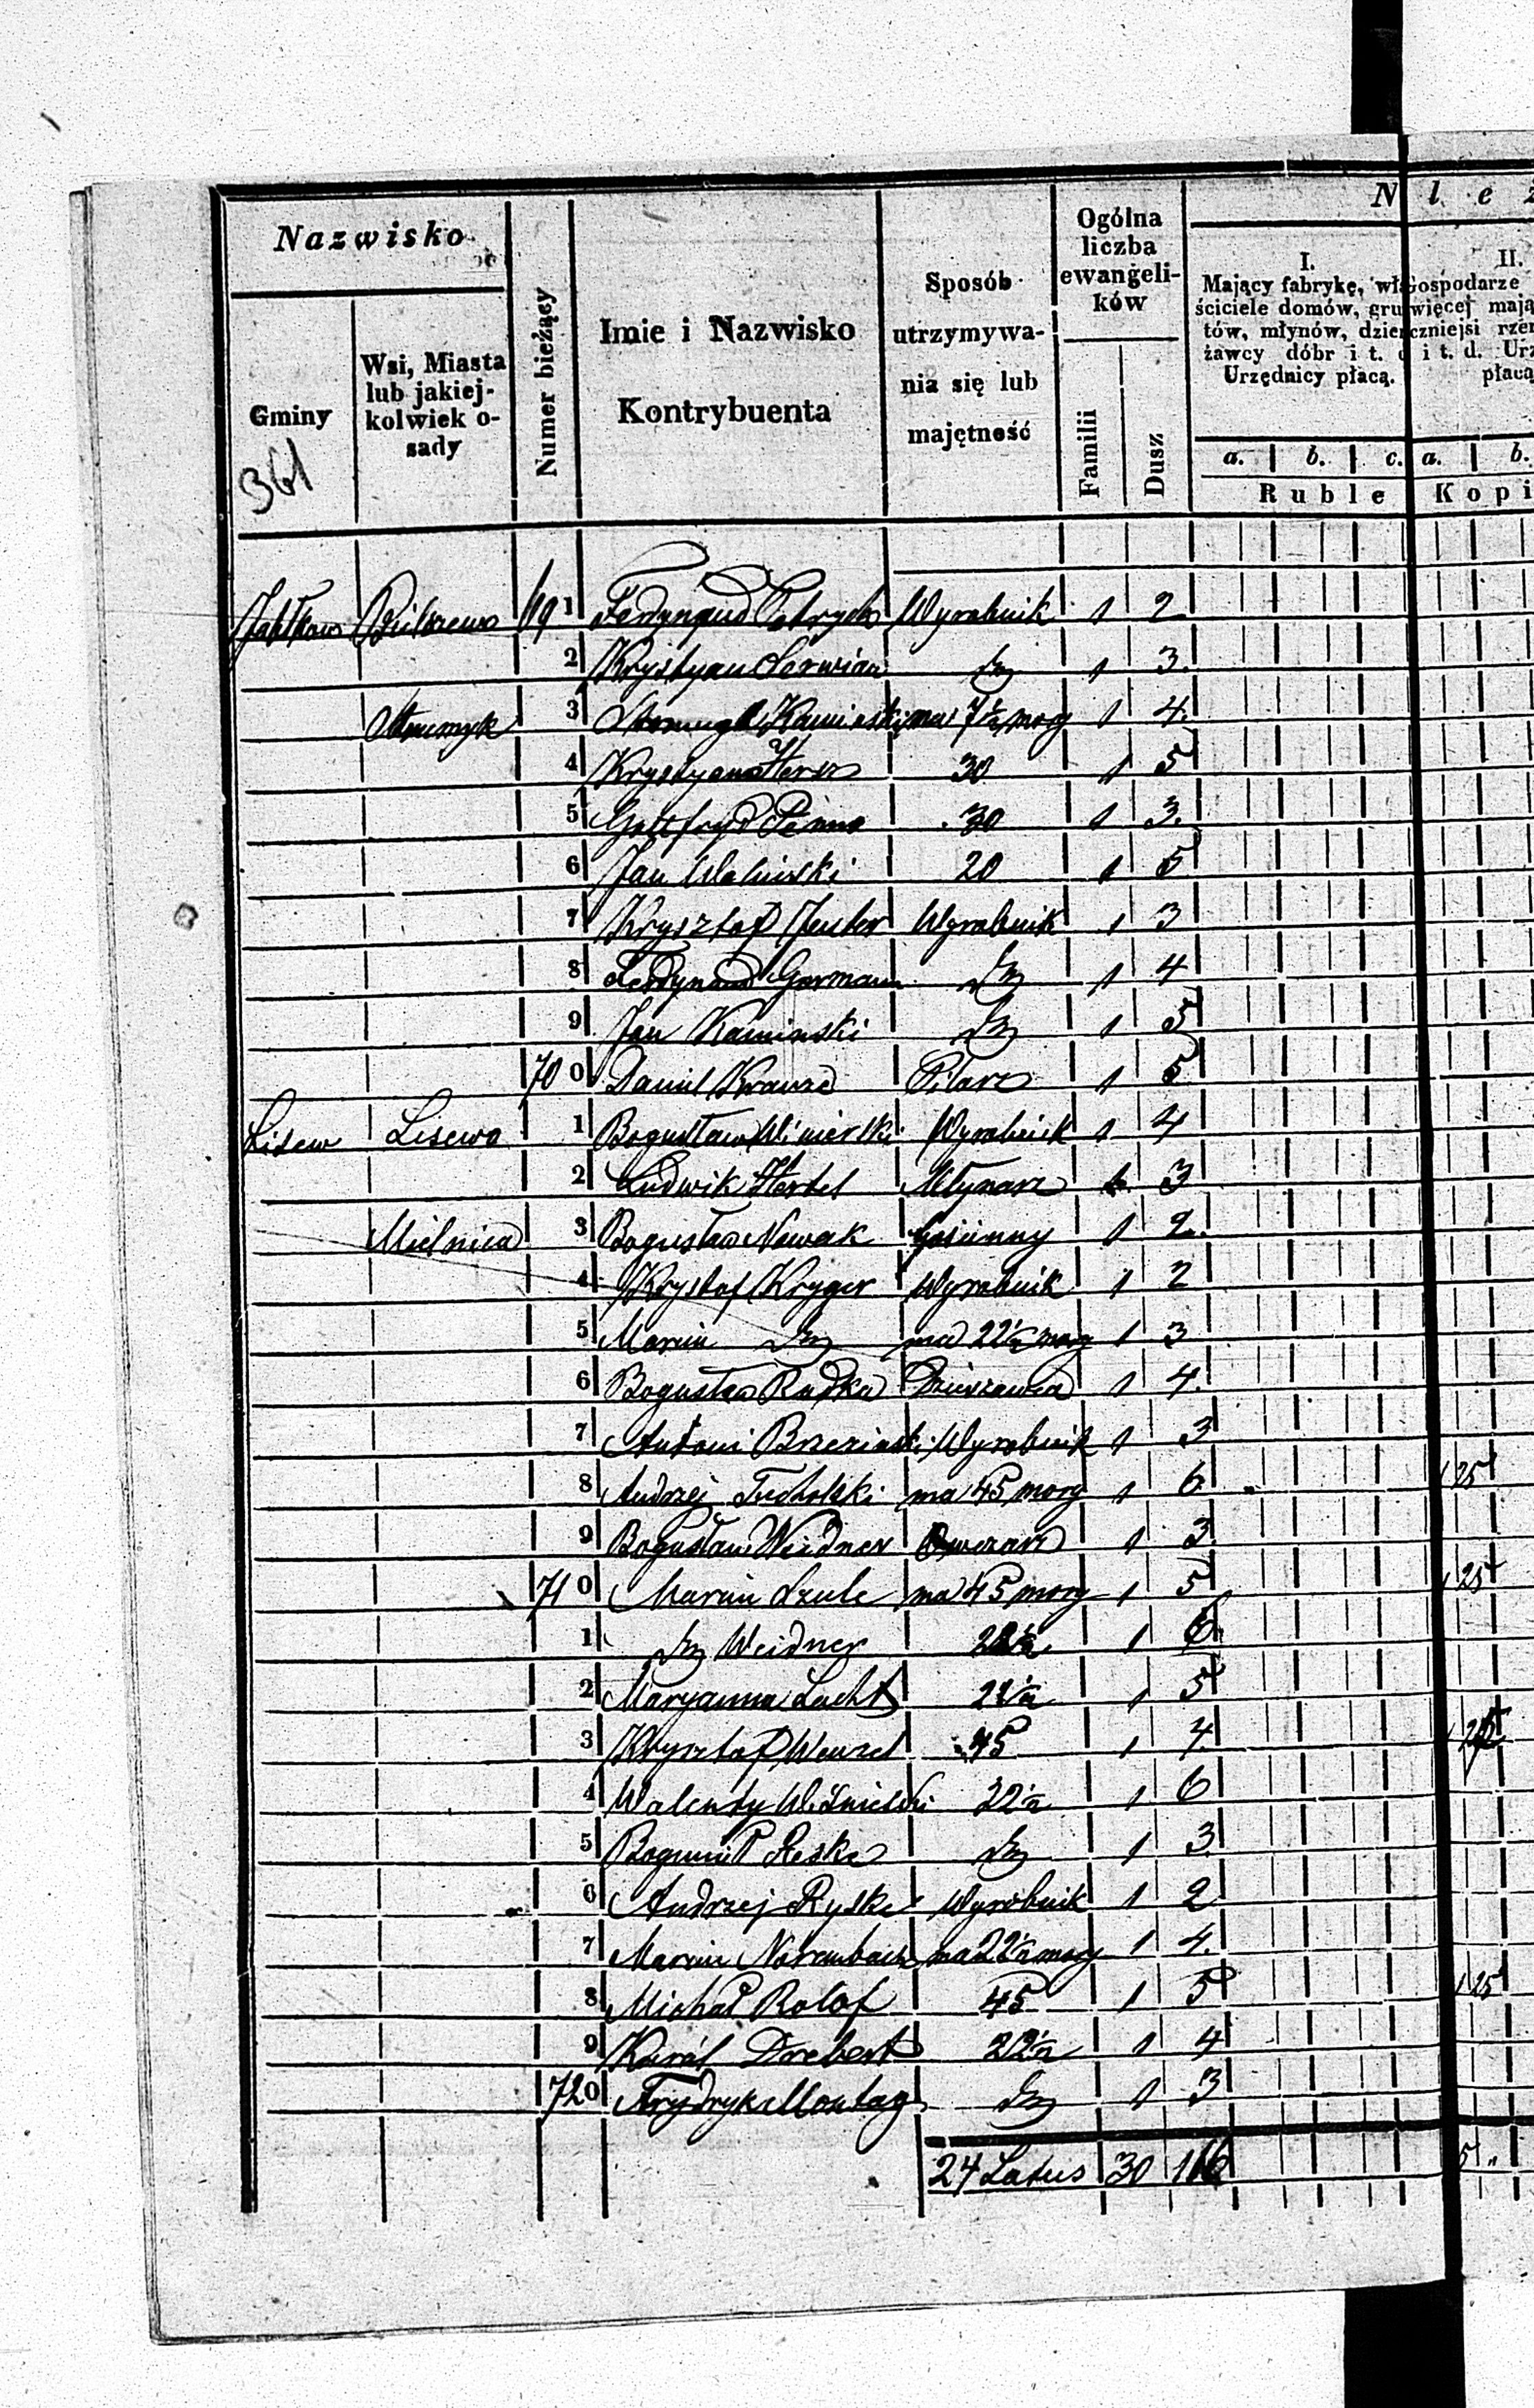 Nazwisko
Gminy
361
Wsi, Miasta
lub jakiej-
kolwiek o-
sady
Numer bieżący
Imie i Nazwisko
Kontrybuenta
Sposób
utrzymywa-
nia się lub
majętność
Ogólna
liczba
ewangeli-
ków
Familii
Dusz
N l e ż
I.
Mający fabrykę, wła
ściciele domów, gru
tów, młynów, dzier
żawcy dóbr i t. d
Urzędnicy płacą.
II.
Gospodarze
więcej mają
czniejsi rze
i t. d. Urz
płacą
a. b. c. a. b.
Ruble Kopi
691 Wyrobnik 1 2
2 Krystyan dto 1 3.
3 Kaminski ma 7½ morg 1 4.
4 Krystyan Hersz 30 1 5
5 Gottfryd 30 1 3.
6 Jan Woliński 20 1 5
7 Krysztof Jeuter Wyrobnik 1 3
8 Ferdynand Germann dto 1 4
9 Jan Kaminski dto 1 5
700 Daniel Krauze Pilarz 1 5
Lisew Lisewo 1 Bogusław Wyrobnik 1 4
2 Ludwik Hertel Młynarz 1 3
Mielnica 3 Bogusław Nowak Gościnny 1 2.
4 Krystof Kryger Wyrobnik 1 2
5 Marcin dto ma 22½ morg 1 3
6 Bogusław Radka Dzierzawca 1 4.
7 Antoni Brzezinski Wyrobnik 1 3
8 Andrzej Tucholski ma 45 morg 1 6 25
9 Bogusław Weidner Owczarz 1 3.
710 Marcin Szulc ma 45 morg 1 5 25
1 dto Weidner 22½ 1 6
2 Maryanna Lucht 22½ 1 5
3 Krysztof Wenzel 45 1 4
4 Walenty Wiśniewski 22½ 1 6
5 Bogumił Reske dto 1 3
6 Andrzej Ryske Wyrobnik 1 2
7 Marcin ma 22½ morg 1 4.
8 Michał Rolof 45 1 5 25
9 Karól Drebert 22½ 1 4
720 Frydryk Montag dto 1 3
24 Latus 30 116 5 "